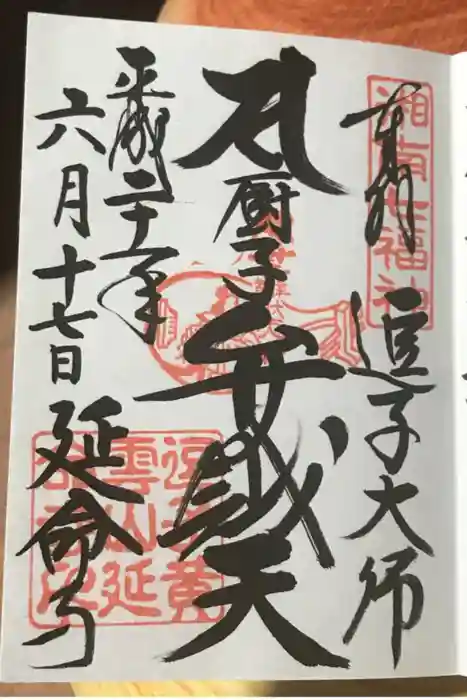 湘南七福神
奉拝 逗子大師
厨子弁戝天
平成二十年
六月十七日 延命寺
逗子黄
雲山延
命寺印